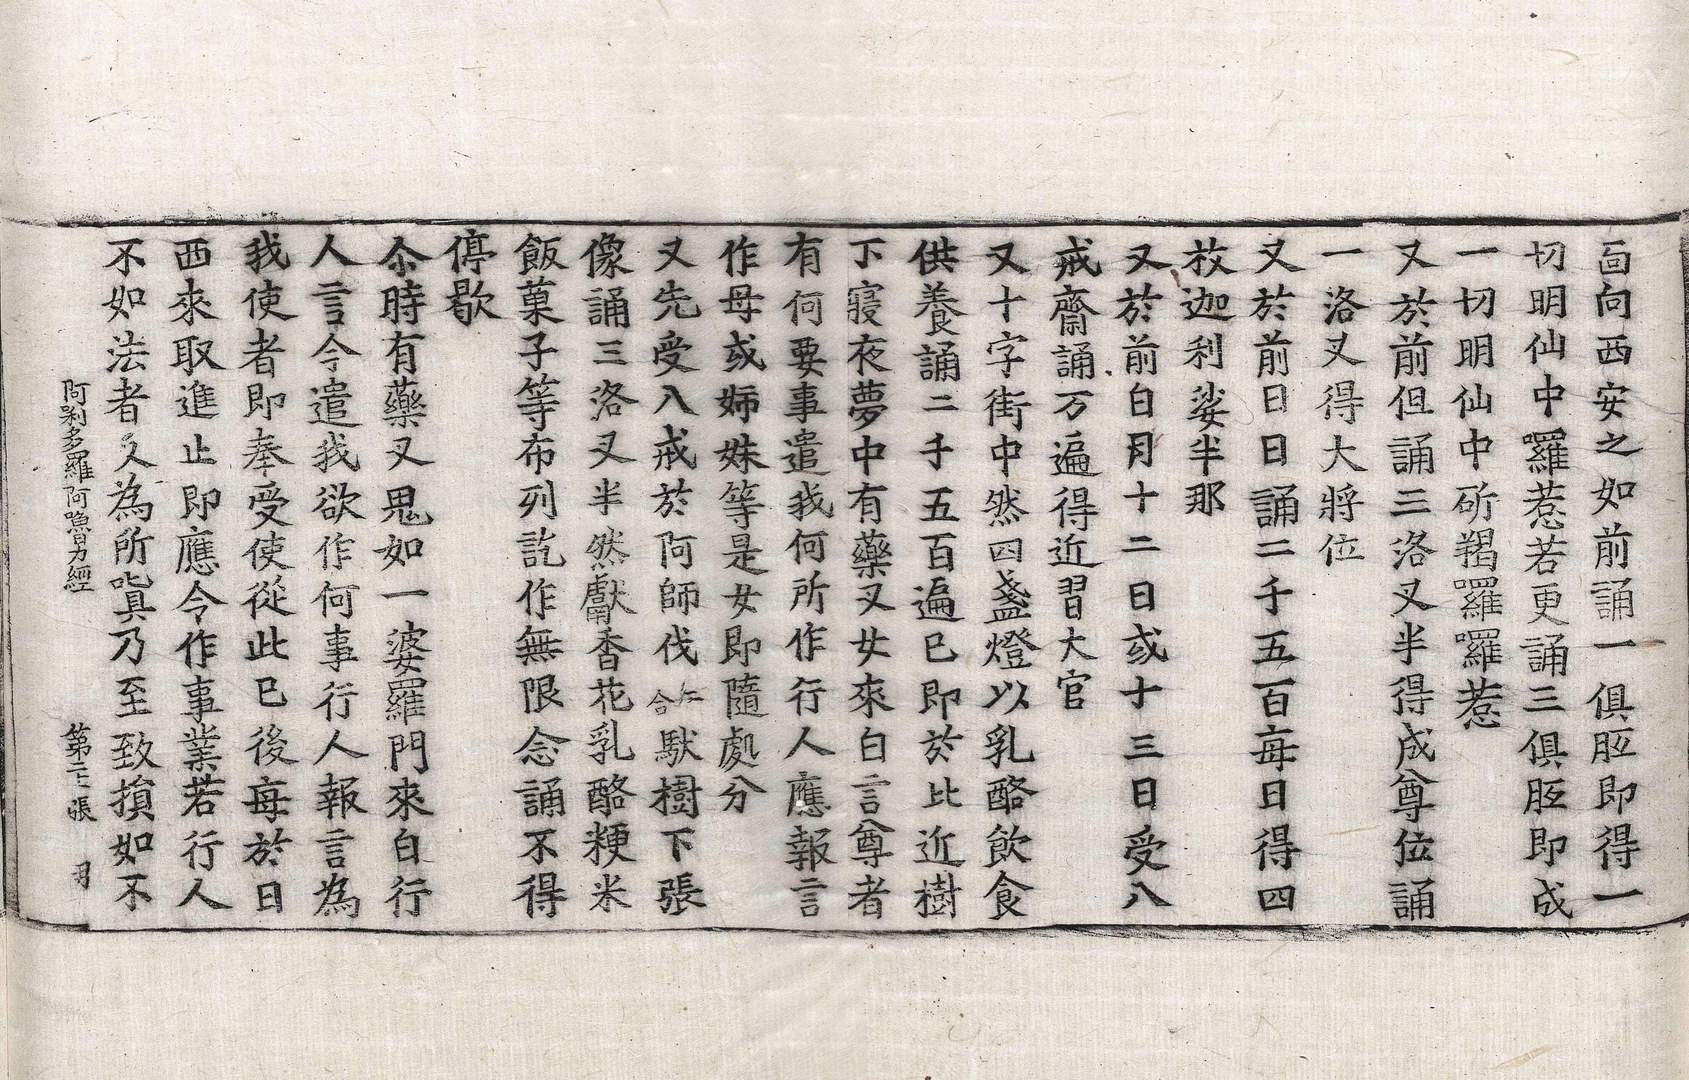 面向西安之如前誦一俱胝即得一
切明仙中囉惹若更誦三俱胝即成
一切明仙中斫羯羅囉惹
又於前但誦三洛叉半得成尊位誦
一洛叉得大將位
又於前日日誦二千五百每日得四
枚迦利娑半那
又於前白月十二日或十三日受八
戒齋誦万遍得近習大官
又十字街中然四盞燈以乳酪飲食
供養誦二千五百遍已即於比近樹
下寢夜夢中有藥叉女來白言尊者
有何要事遣我何所作行人應報言
作母或姉妹等是女即隨處分
又先受八戒於阿師伐仁合馱樹下張
像誦三洛叉半然獻香花乳酪粳米
飯菓子等布列訖作無限念誦不得
停歇
尒時有藥叉鬼如一婆羅門來白行
人言今遣我欲作何事行人報言為
我使者即奉受使從此已後每於日
西來取進止即應令作事業若行人
不如法者反為所嗔乃至致損如不
阿唎多羅阿嚕力經 第二十張 母